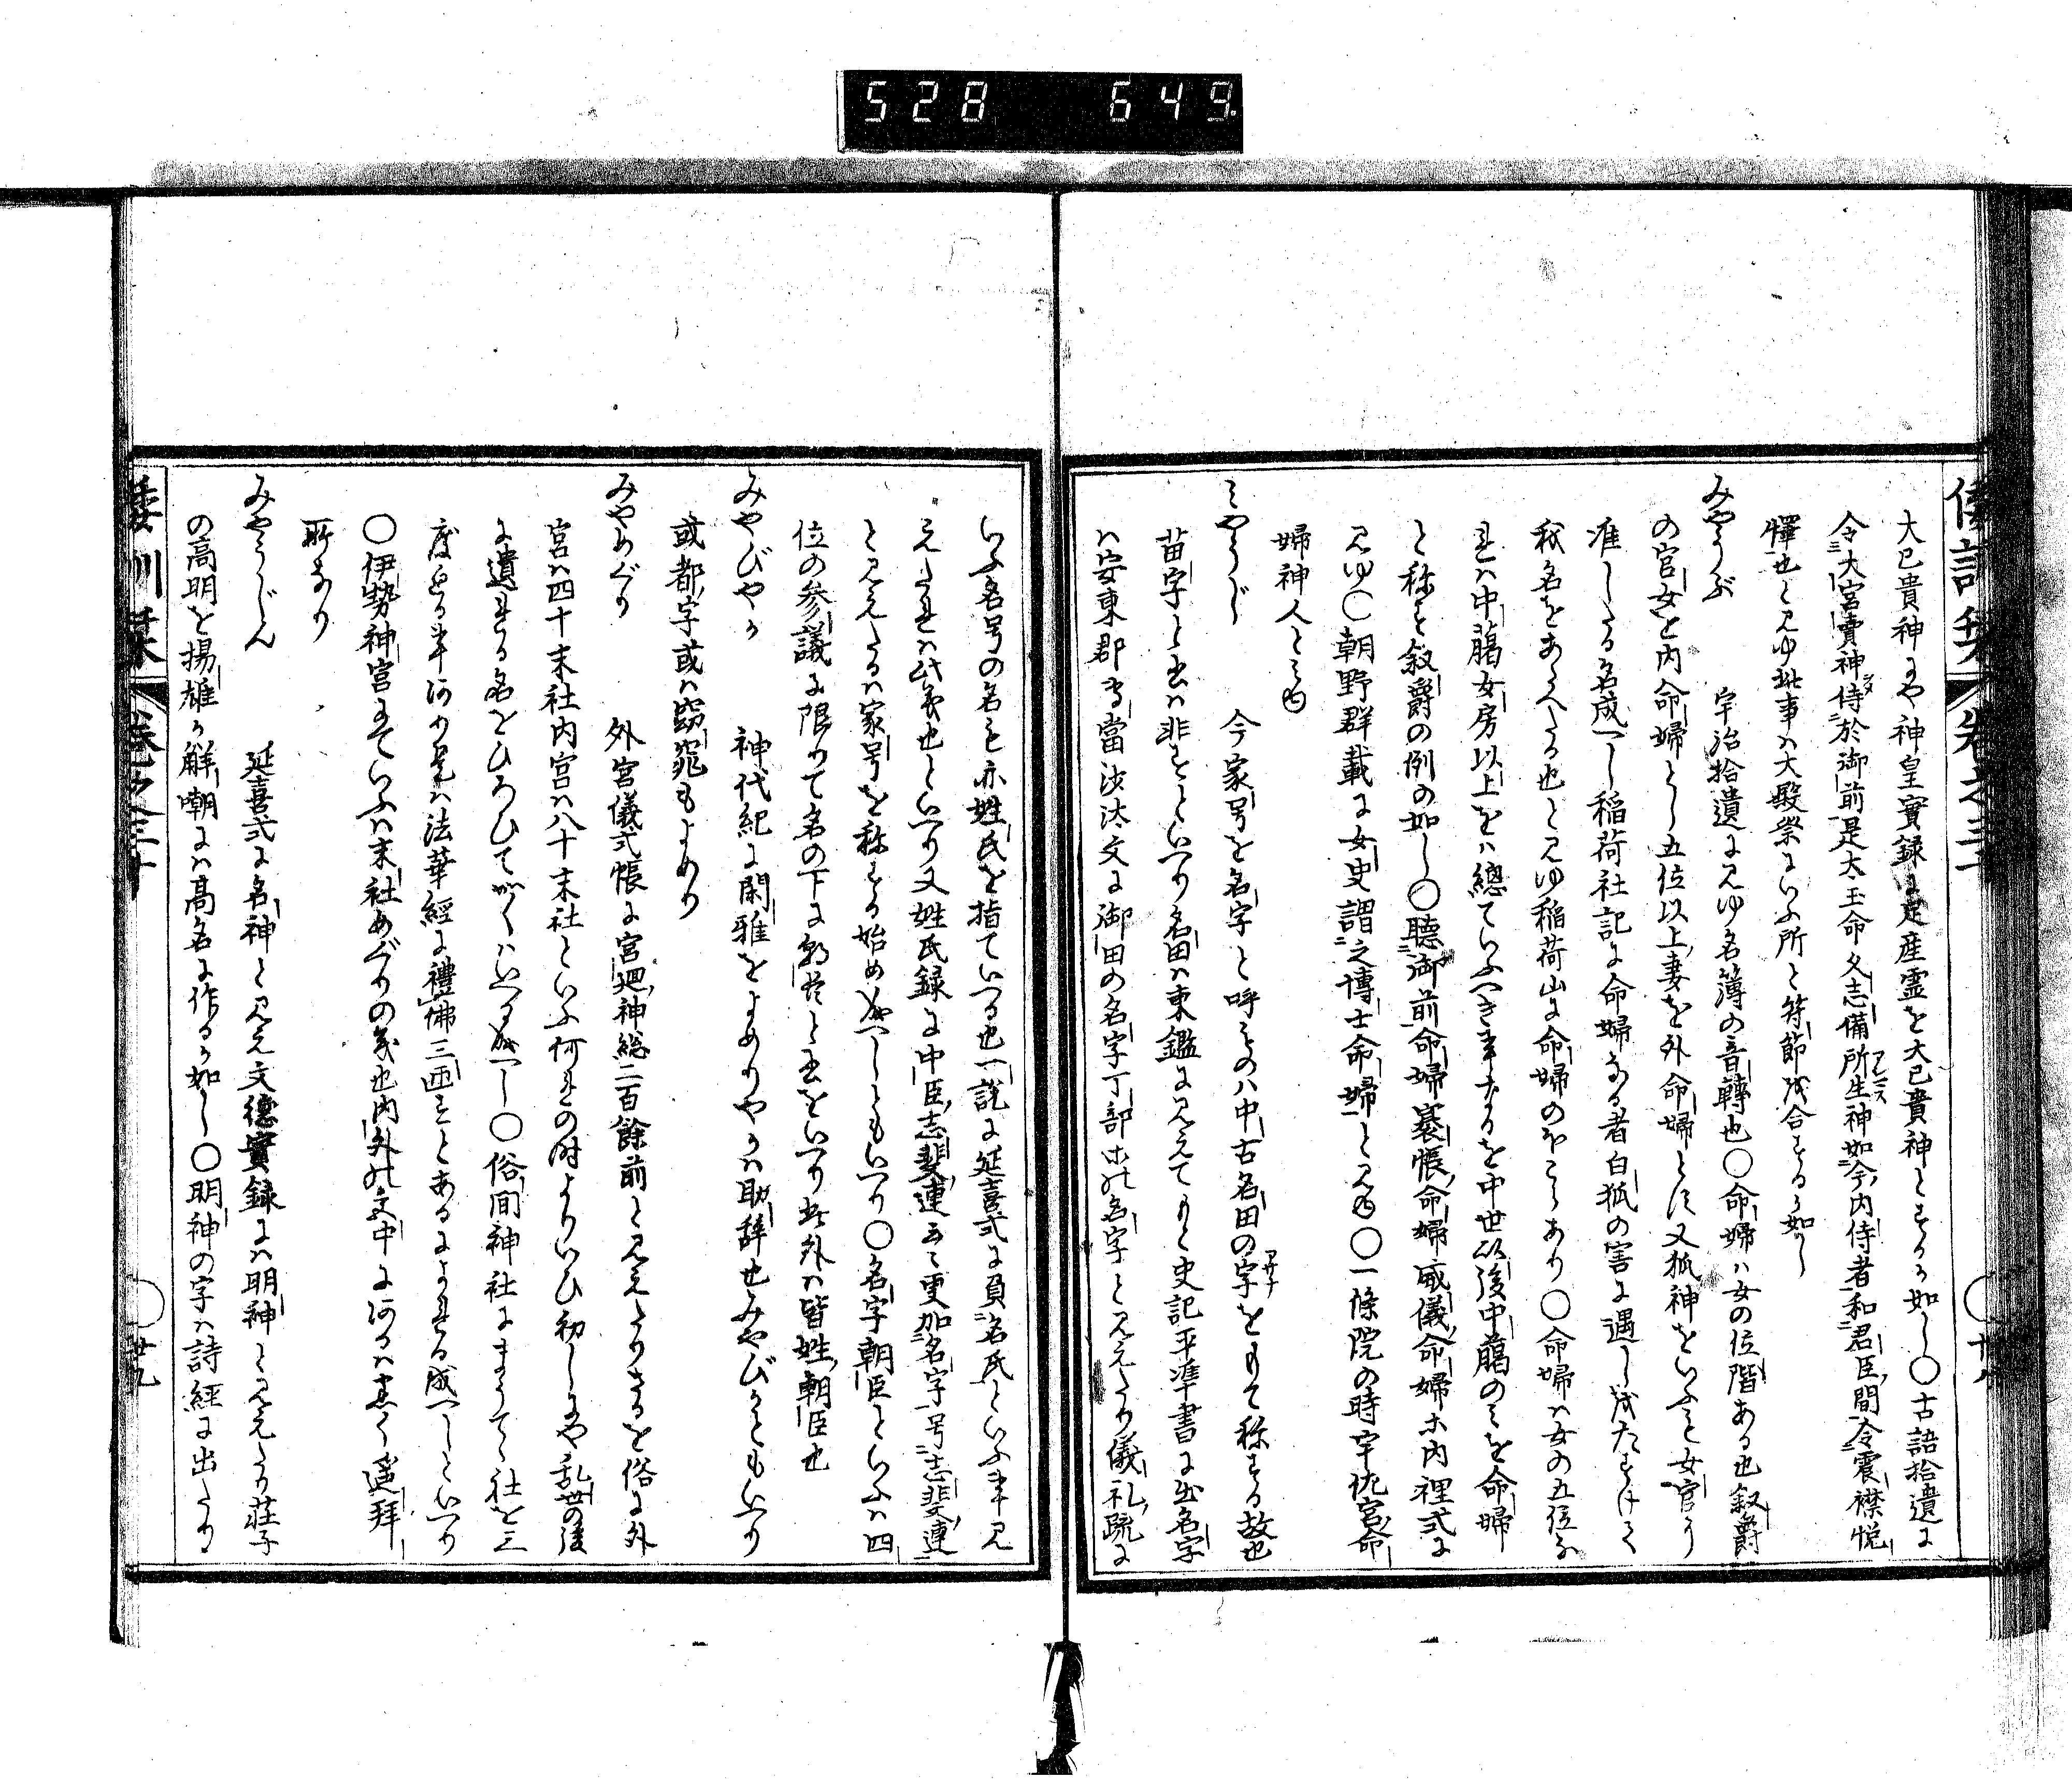 528 649
倭訓栞 卷之三十
大已貴神にや神皇實録に足産霊を大已貴神とするか如し〇古語拾遺に
令大宮賣神侍於御前是太玉命久志備所生神如今内侍者和君臣間令震襟悦
懌也と見ゆ此事ハ大殿祭にいふ所と符節を合するか如し
みやうぶ 宇治拾遺に見ゆ名簿の音轉也〇命婦ハ女の位階ある也叙爵
の官女を内命婦とし五位以上妻を外命婦とす又狐神をいふも女官に
准したる名成へし稲荷社記に命婦なる者白狐の害に遇しをたすけて
我名をあたへたる也と見ゆ稲荷山に命婦のほこらあり〇命婦ハ女の五位な
れハ中臈女房以上をハ總ていふへき事なるを中世以後中臈のミを命婦
と称す叙爵の例の如し〇聴御前命婦褰帳命婦威儀命婦ホ内裡式に
見ゆ〇朝野群載に女史謂之博士命婦と見ゆ〇一條院の時宇佐宮命
婦神人とミゆ
ミやうじ 今家号を名字と呼ものハ中古名田の字をもて称する故也
苗字と書ハ非也といへり名田ハ東鑑に見えてもと史記平準書に出名字
ハ安東郡専當沙汰文に御田の名字丁部ホの名字と見えたり儀礼疏に
いふ名号の名も亦姓氏を指ていへる也一説に延喜式に負名氏といふ事見
えたれハ此義也といへり又姓氏録に中臣志斐連云々更加名字号志斐連
と見えたるハ家号を称する始め成へしともいへり〇名字朝臣といふハ四
位の参議に限りて名の下に朝臣と書をいへり此外ハ皆姓朝臣也
みやびやか 神代紀に閑雅をよめりやかハ助辞也みやびかともいへり
或都字或ハ窈窕もよめり
みやめぐり 外宮儀式帳に宮廻神総二百餘前と見えたりさるを俗に外
宮ハ四十末社内宮ハ八十末社といふ何れの時よりいひ初しにや乱世の後
に遺れる名をひろひてかくハいへる成へし〇俗間神社にまうてゝ社を三
度めくる事有り是ハ法華經に禮佛三匝すとあるによれる成へしといへり
〇伊勢神宮にていふハ末社めぐりの義也内外の文中に有るハ悉く遥拜
所なり
みやうじん 延喜式に名神と見え文徳實録にハ明神と見えたり荘子
の高明を揚雄か解嘲にハ高名に作るか如し〇明神の字ハ詩經に出たり
倭訓栞 卷之三十 廿九